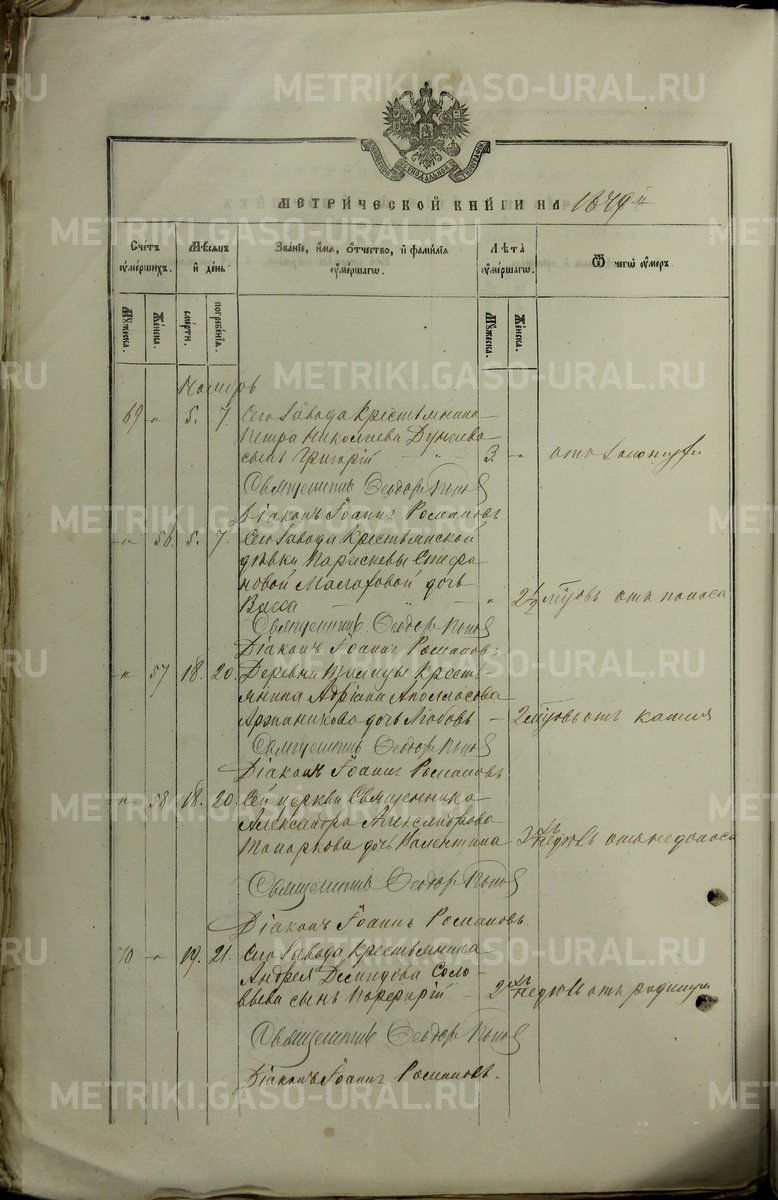 METRIKI.GASO-URAL.RU
МЕТРИЧЕСКОЙ КНИГИ НА 1879 й
Счетъ умершихъ.
Мѣсяцъ и день
Званіе, имя, отчество, и фамилія умершаго.
Лѣта умершаго.
Ѿ чего умеръ
Мужеска.
Женска.
смерти.
погребенія.
Мужеска.
Женска.
Ноябрь
69 " 5. 7. Сего Завода Крестьянина
Петра Николаева
сынъ Григорій 3. " отъ
Священникъ Ѳеодоръ Поповъ
Діаконъ Іоаннъ Романовъ
" 56. 5. 7. Сего Завода Крестьянской
дѣвки Параскевы Стефа-
новой Малаховой дочь
Васса " 2 1/2 годовъ отъ поноса
Священникъ Ѳеодоръ Поповъ
Діаконъ Іоаннъ Романовъ
" 57 18. 20. Деревни Крестъ-
янина Адріана Аполлосова
дочь Любовь – 2 годовъ отъ кашля
Священникъ Ѳеодоръ Поповъ
Діаконъ Іоаннъ Романовъ.
" 58 18. 20. Сей церкви Священника
Александра Александрова
Топоркова дочь Валентина 3хъ недѣль отъ недоноса
Священникъ Ѳеодоръ Поповъ
Діаконъ Іоаннъ Романовъ.
70 " 19. 21. Сего Завода Крестьянина
Андрея Демидова Соло-
вьева сынъ Порфирій – 2хъ недѣль отъ родимца
Священникъ Ѳеодоръ Поповъ
Діаконъ Іоаннъ Романовъ.